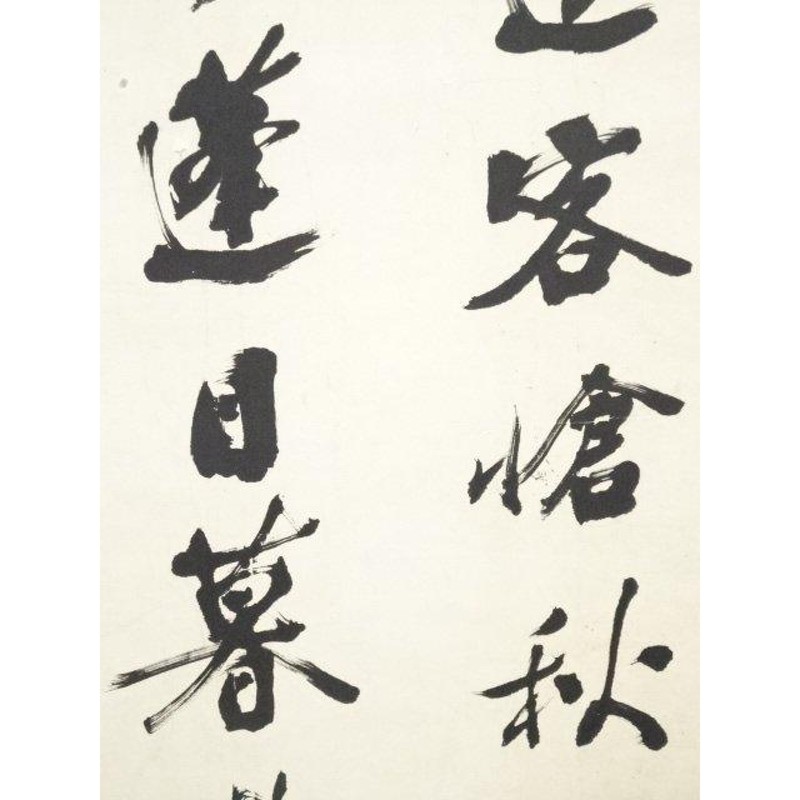 客愴秋
蓬日暮